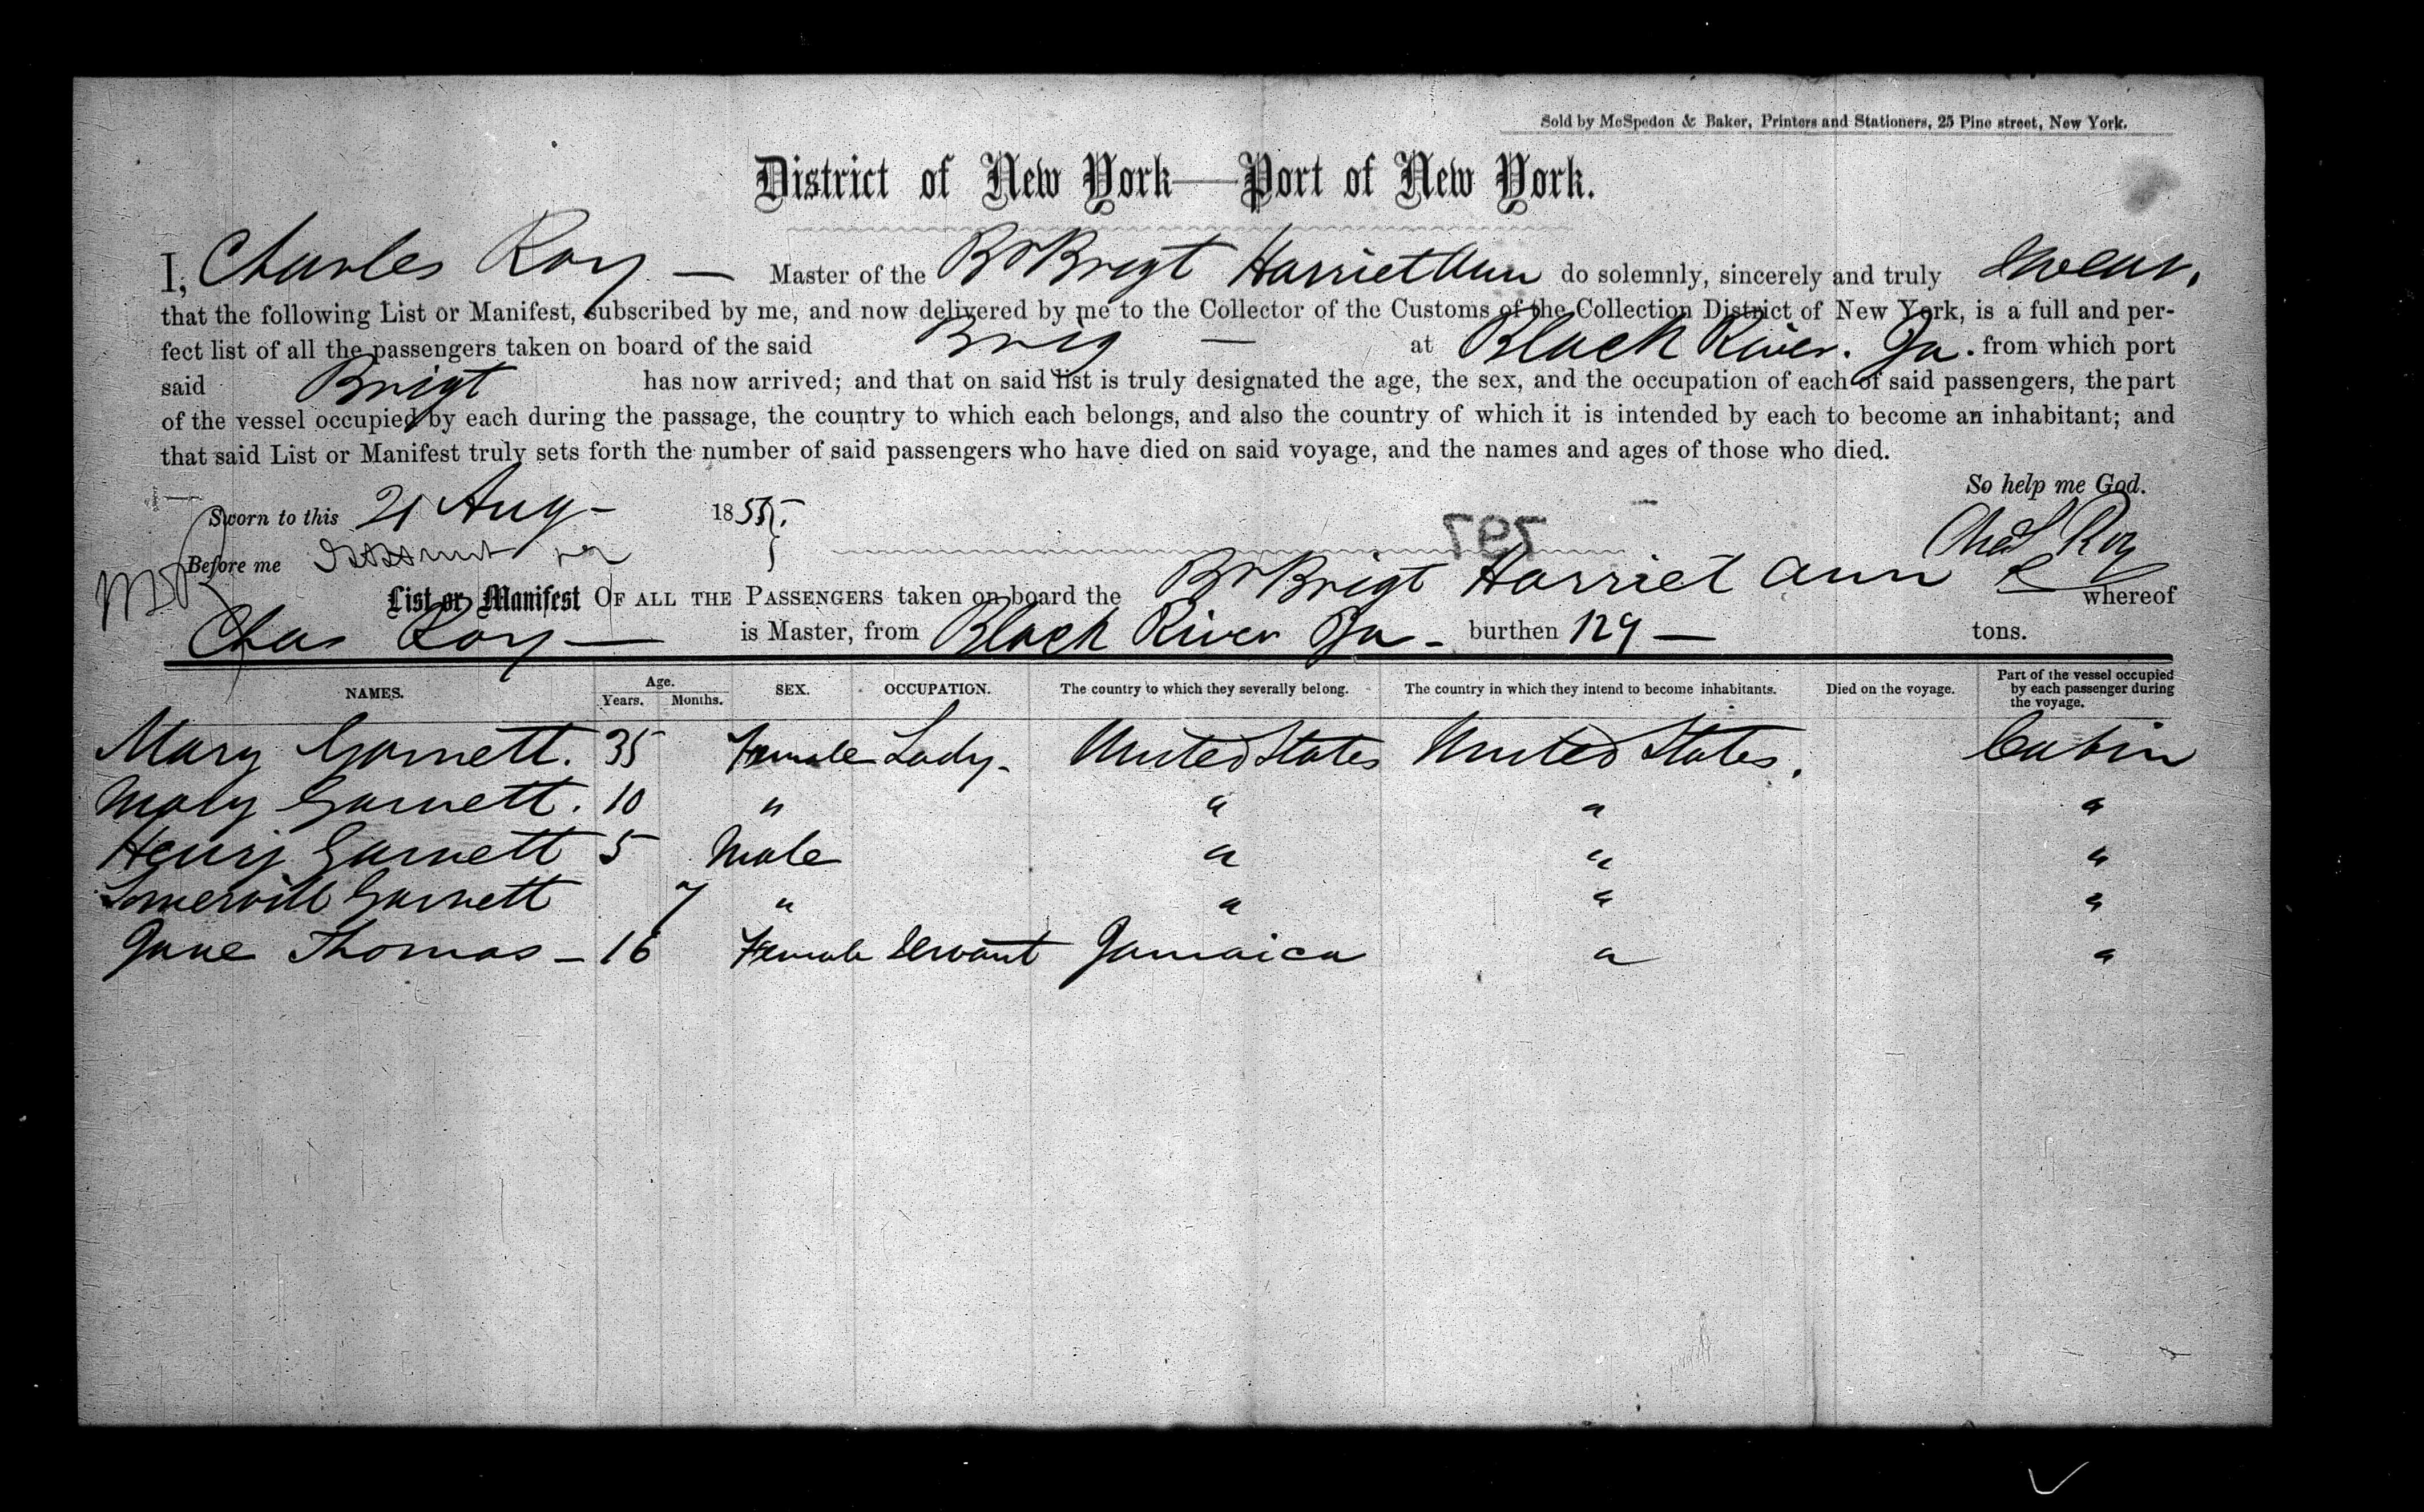 Sold by McSpedon & Baker, Printers and Stationers, 25 Pine street, New York.
District of New York—Port of New York.
I, Charles Roy — Master of the Br Brigt Harriet Ann do solemnly, sincerely and truly swear,
that the following List or Manifest, subscribed by me, and now delivered by me to the Collector of the Customs of the Collection District of New York, is a full and per-
fect list of all the passengers taken on board of the said Brig — at Black River. Ja. from which port
said Brigt has now arrived; and that on said list is truly designated the age, the sex, and the occupation of each of said passengers, the part
of the vessel occupied by each during the passage, the country to which each belongs, and also the country of which it is intended by each to become an inhabitant; and
that said List or Manifest truly sets forth the number of said passengers who have died on said voyage, and the names and ages of those who died.
So help me God.
Sworn to this 21 Aug - 1855.
797
Chas Roy
Before me
List or Manifest OF ALL THE PASSENGERS taken on board the Br Brigt Harriet Ann whereof
Chas Roy — is Master, from Black River Ja - burthen 129 — tons.
NAMES. Age. Years. Months. SEX. OCCUPATION. The country to which they severally belong. The country in which they intend to become inhabitants. Died on the voyage. Part of the vessel occupied by each passenger during the voyage.
Mary Garnett. 35 Female Lady- United States United States. Cabin
Mary Garnett. 10 " " " "
Henry Garnett 5 Male " " "
Somervill Garnett 7 " " " "
Jane Thomas - 16 Female Servant Jamaica " "